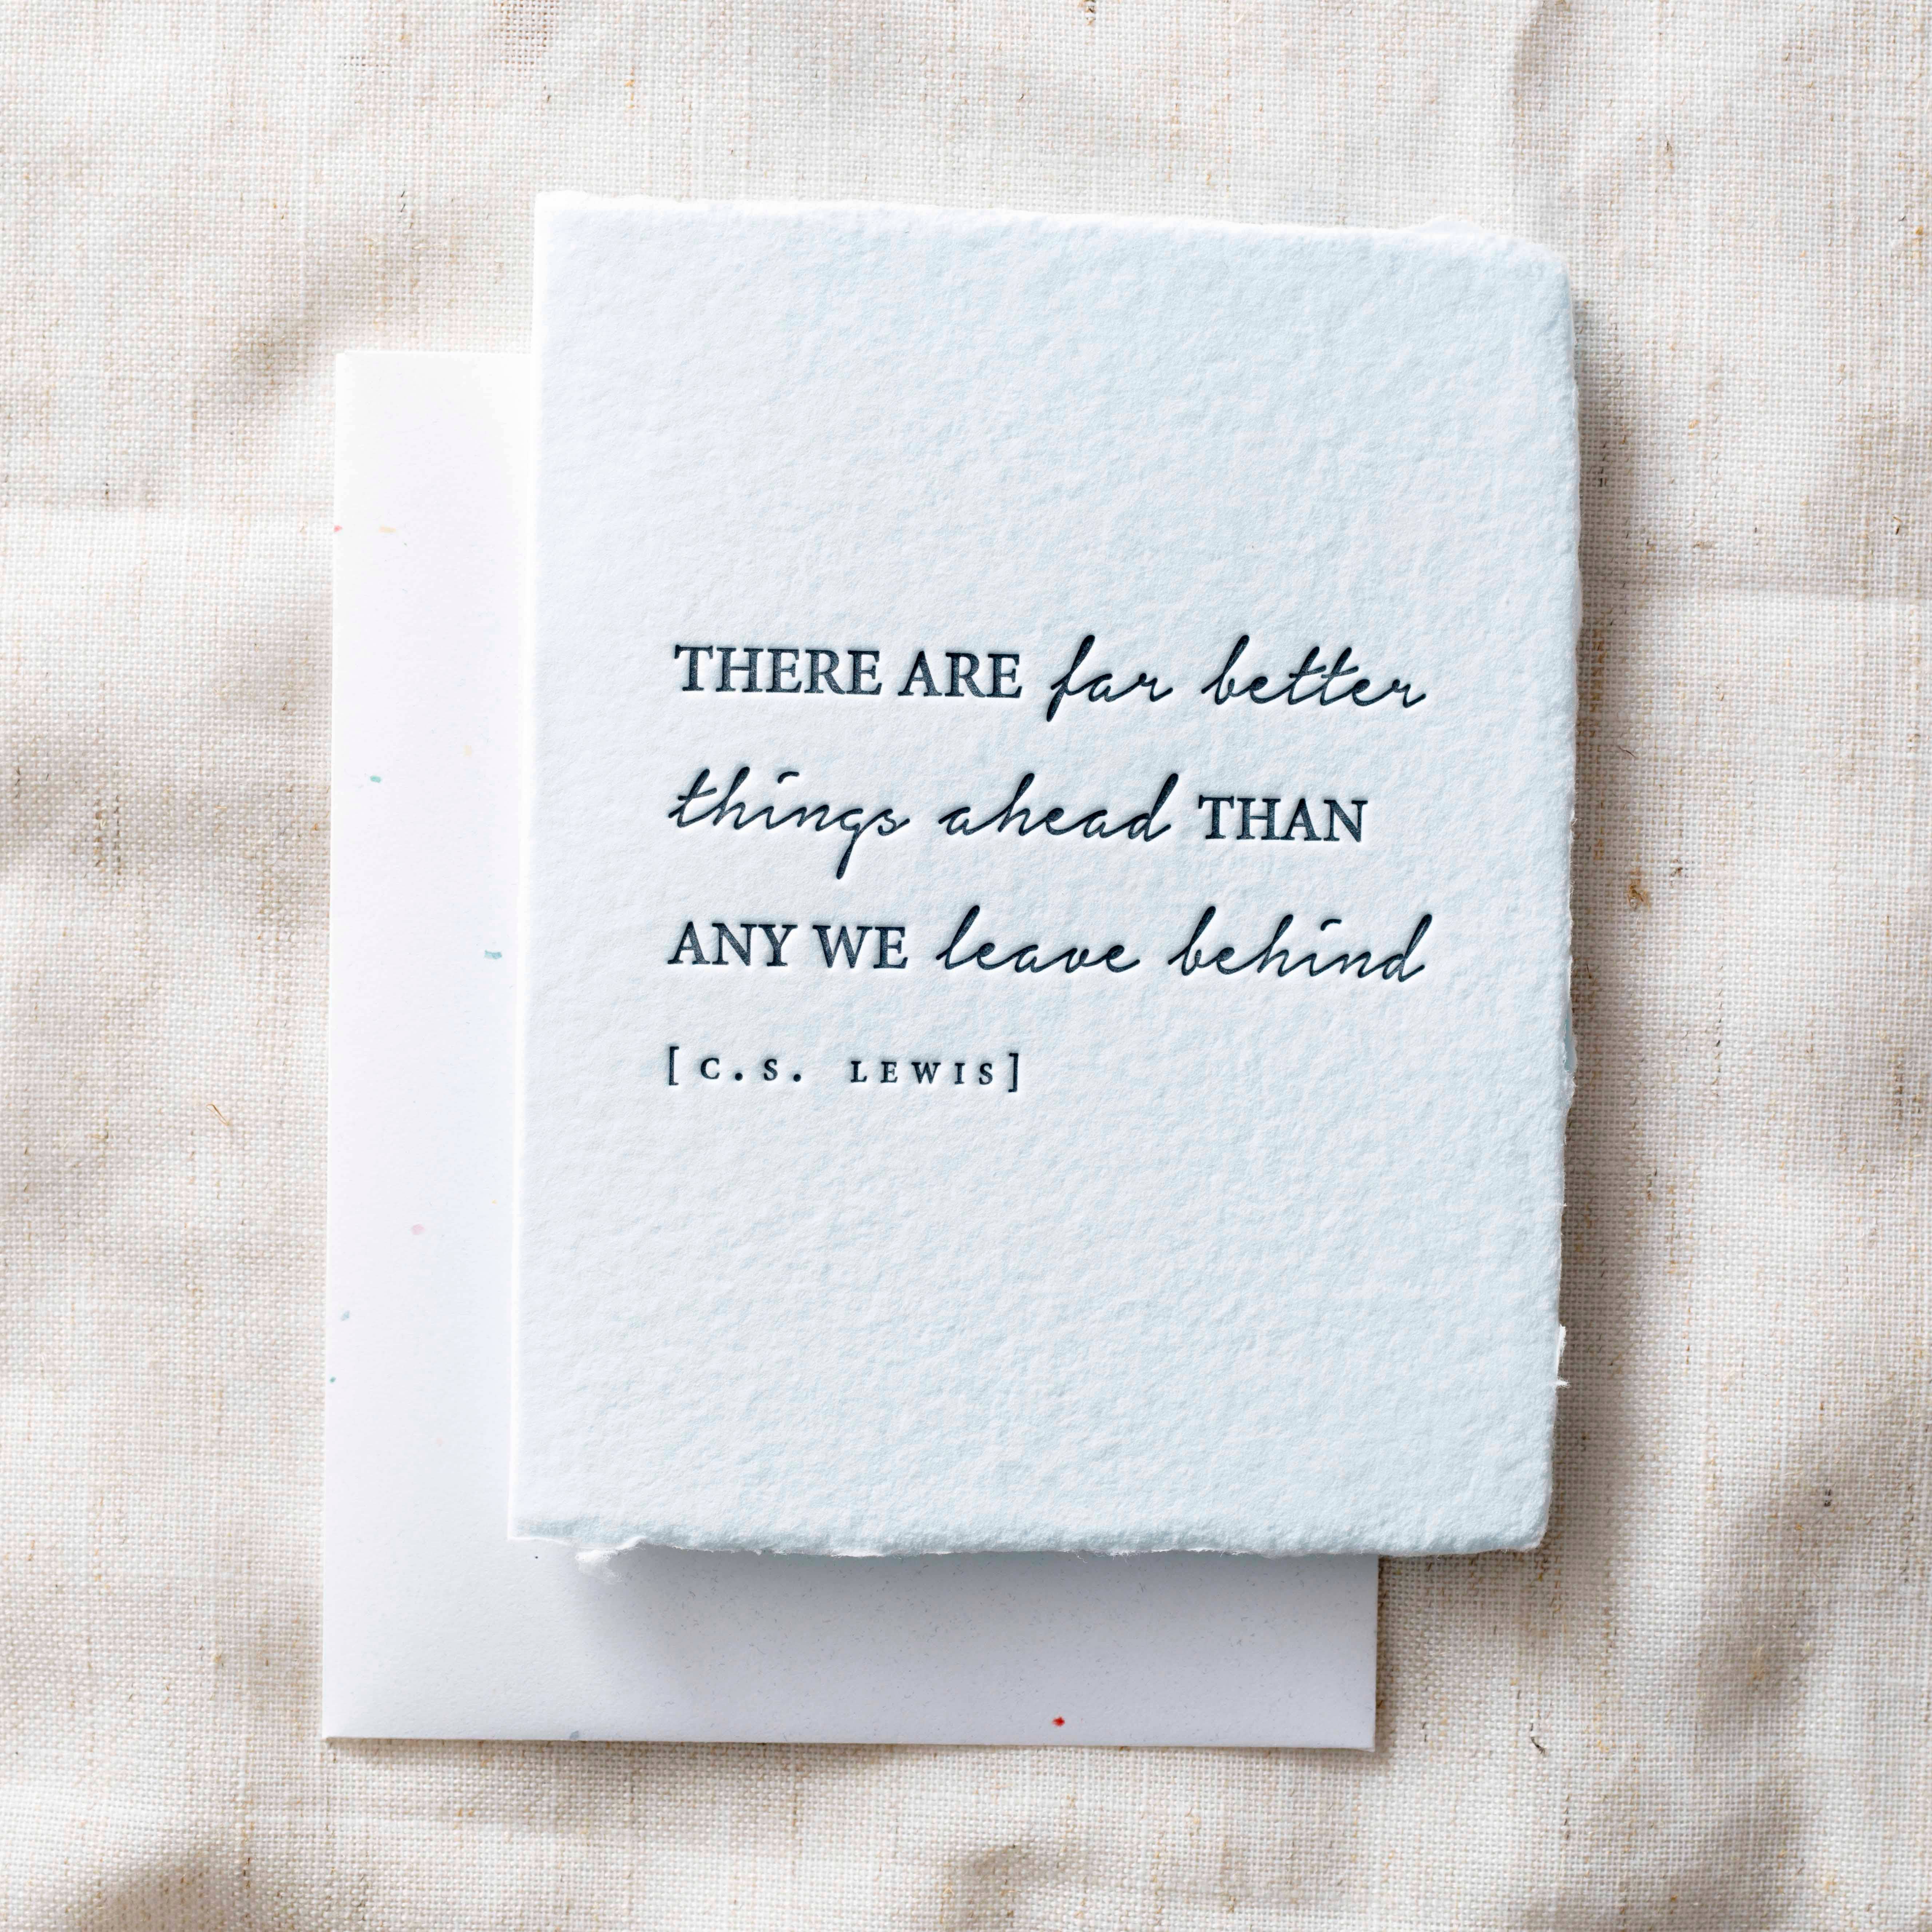 THERE ARE far better
things ahead THAN
ANY WE leave behind
[C.S. LEWIS]